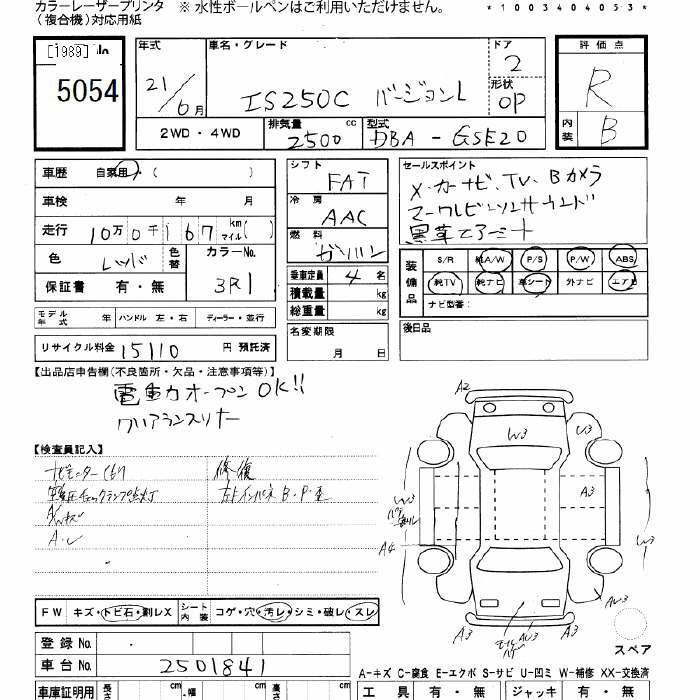 カラーレーザープリンタ ※ 水性ボールペンはご利用いただけません。 *1003404053*
（複合機）対応用紙
[1989]
5054
年式 車名・グレード ドア 評価点
21/6月 IS250C バージョンL 2 R
形状 OP
2WD・4WD 排気量 2500 cc 型式 DBA-GSE20 内装 B
車歴 自家用・（ ） シフト FAT セールスポイント
車検 年 月 冷房 AAC メーカーナビ、TV、Bカメラ
走行 10万0千167 km マイル ( ) 燃料 ガソリン マークレビンソンサウンド
黒革エアシート
色 レッド 色替 カラーNo. 3R1
保証書 有・無
乗車定員 4 名
積載量 kg
総重量 kg
装備品 S/R 純A/W P/S P/W ABS
純TV 純ナビ 革シート 外ナビ エアB
ナビ型番:
モデル年式 年 ハンドル 左・右 ディーラー・並行
名変期限 月 日
後日品
リサイクル料金 15110 円 預託済
【出品店申告欄(不良箇所・欠品・注意事項等)】
電動オープンOK!!
クリアランスソナー
【検査員記入】
修復
A・U
A2
W3
U3
A3
W3
A4
A3
AU3
AU3
A3
A3
スペア
FW キズ・トビ石・割レX シート内装 コゲ・穴・汚レ・シミ・破レ・スレ
登録 No.
車台 No. 2501841
A-キズ C-腐食 E-エクボ S-サビ U-凹ミ W-補修 XX-交換済
車庫証明用 長さ cm ・幅 cm 高さ cm 工具 有・無 ジャッキ 有・無